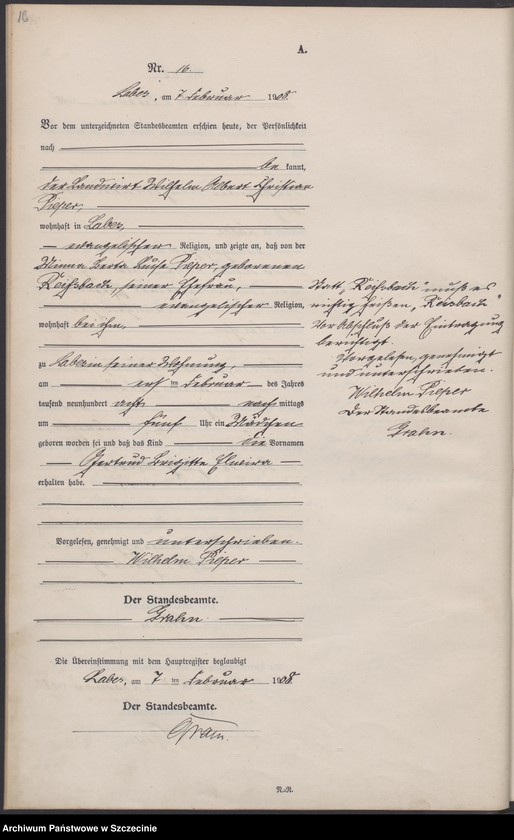 16
A.
Nr. 16.
Labes, am 7 Februar 1908.
Vor dem unterzeichneten Standesbeamten erschien heute, der Persönlichkeit
nach
be kannt,
der Landwirt Wilhelm Albert Christian
Pieper,
wohnhaft in Labes,
evangelischer Religion, und zeigte an, daß von der
Minna Berta Luise Pieper, geborenen
seiner Ehefrau,
evangelischer Religion,
wohnhaft bei ihm,
zu Labes in seiner Wohnung,
am ersten Februar des Jahres
tausend neunhundert acht nach mittags
um fünf Uhr ein Mädchen
geboren worden sei und daß das Kind die Vornamen
Gertrud Brigitte Elwira
erhalten habe.
Vorgelesen, genehmigt und unterschrieben.
Wilhelm Pieper
Der Standesbeamte.
Die Übereinstimmung mit dem Hauptregister beglaubigt
Labes, am 7 ten Februar 1908
Der Standesbeamte.
Statt muß es
richtig heißen
Vor Abschluß der Eintragung
berichtigt.
Vorgelesen, genehmigt
und unterschrieben.
Wilhelm Pieper
Der Standesbeamte
N.-R.
Archiwum Państwowe w Szczecinie